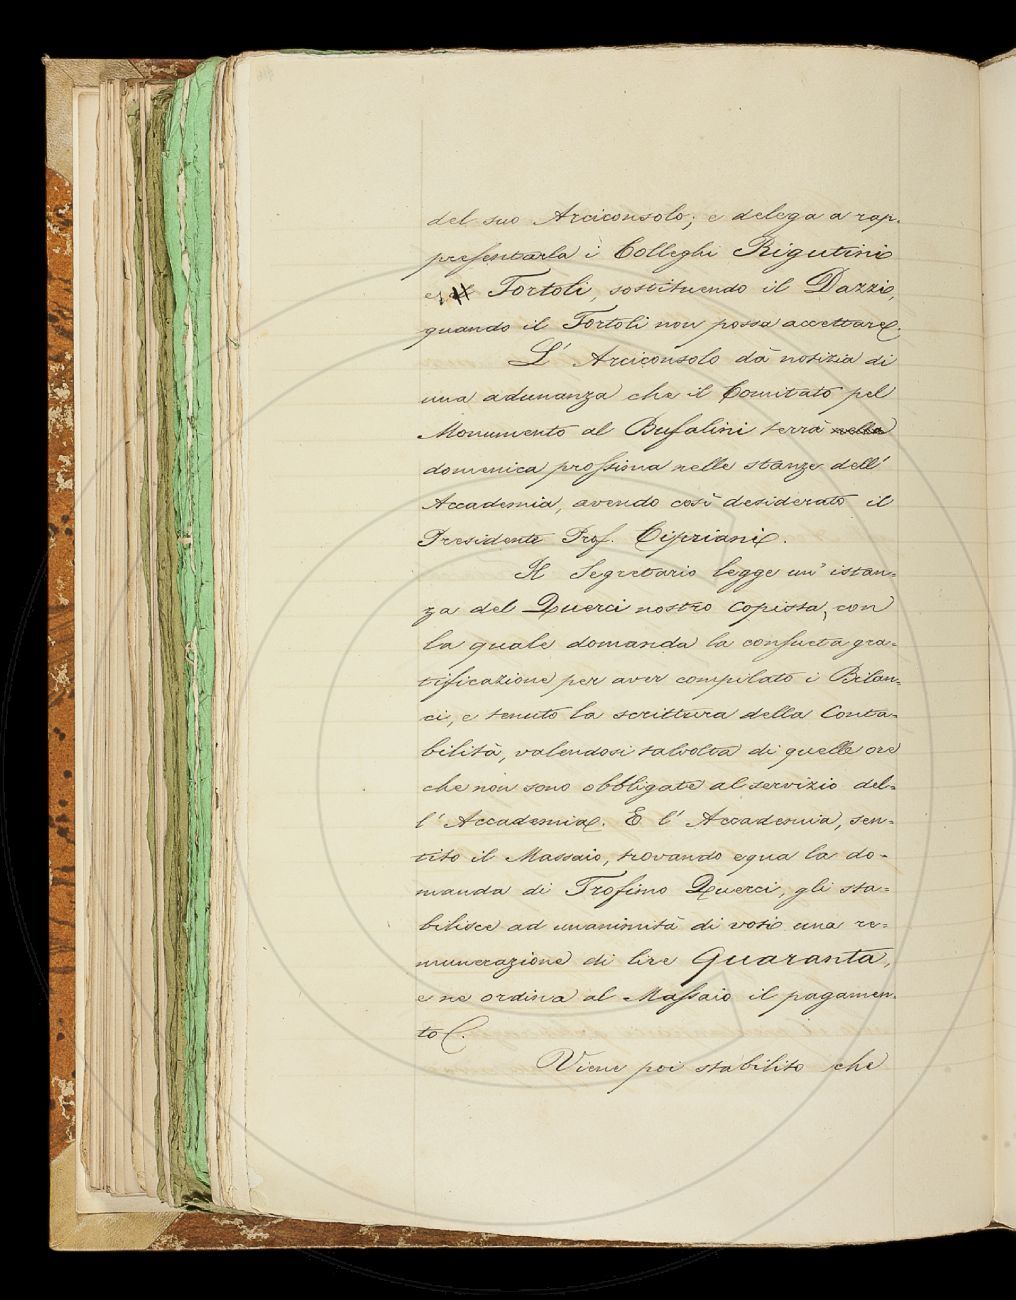 del suo Arciconsolo; e delega a rap-
presentarla i Colleghi Rigutini
e il Tortoli, sostituendo il Dazzi,
quando il Tortoli non possa accettare.
L' Arciconsolo dà notizia di
una adunanza che il Comitato pel
Monumento al Bufalini terrà nella
domenica prossima nelle stanze dell'
Accademia, avendo così desiderato il
Presidente Prof. Cipriani.
Il Segretario legge un' istan-
za del Querci nostro copista, con
la quale domanda la consueta gra-
tificazione per aver compilato i Bilan-
ci, e tenuto la scrittura della Conta-
bilità, valendosi talvolta di quelle ore
che non sono obbligate al servizio del-
l' Accademia. E l' Accademia, sen-
tito il Massaio, trovando equa la do-
manda di Trofimo Querci, gli sta-
bilisce ad unanimità di voti una re-
munerazione di lire Quaranta,
e ne ordina al Massaio il pagamen-
to.
Viene poi stabilito che